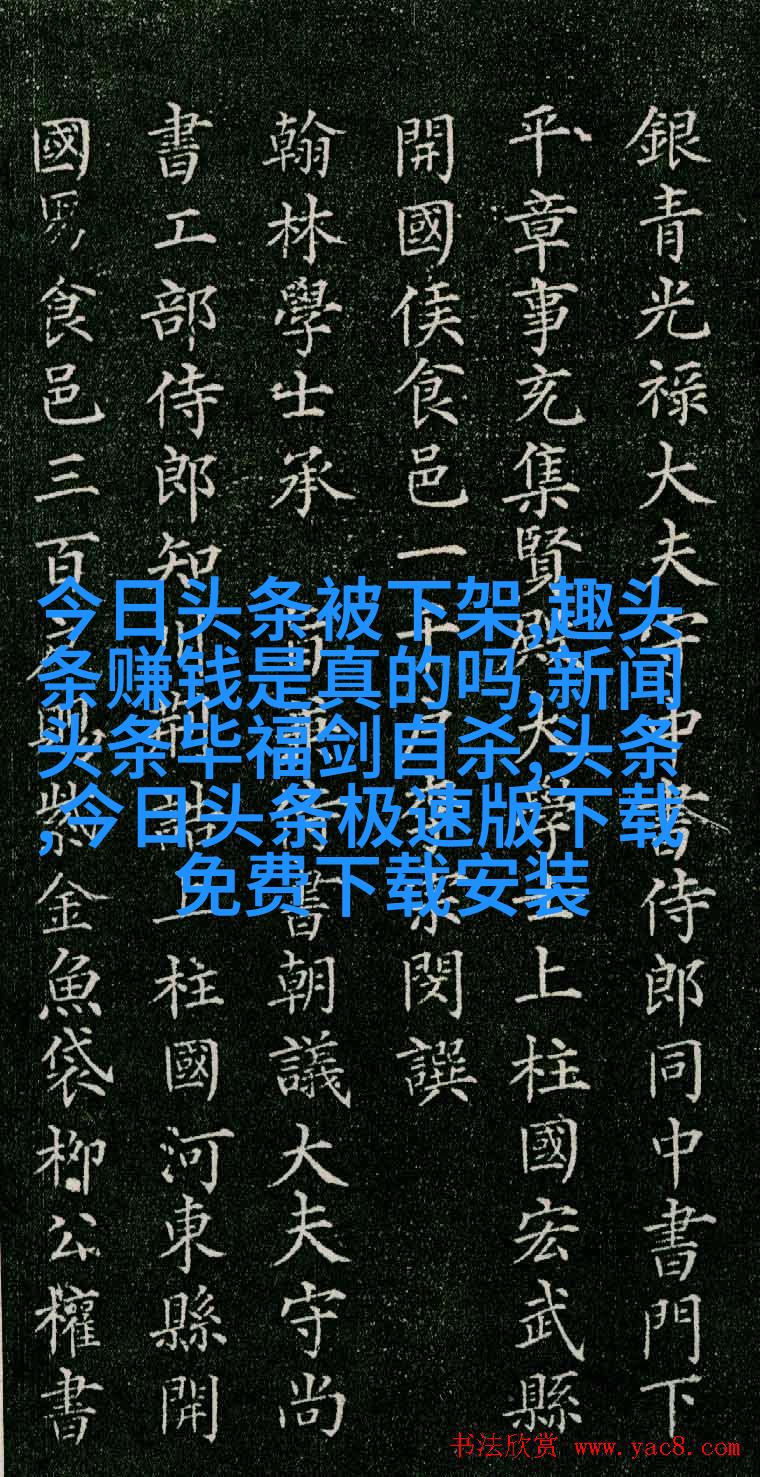 銀青光禄大夫守中書侍郎同中書門下
平章事充集賢殿大學士上柱國宏武縣
開國侯食邑一千户李宗閔撰
翰林學士承旨兼侍書朝議大夫守尚
書工部侍郎知制誥上柱國河東縣開
國男食邑三百户賜紫金魚袋柳公權書
今日头条被下架,趣头
条赚钱是真的吗,新闻
头条毕福剑自杀,头条
,今日头条极速版下载
免费下载安装
书法欣赏 www.yac8.com